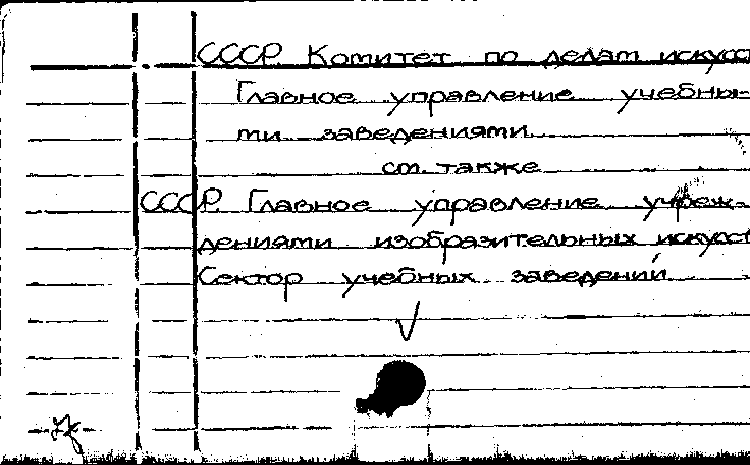 СССР. Комитет по делам искусст
Главное управление учебны-
ми заведениями
см. также
СССР. Главное управление учреж-
дениями изобразительных искусст
Сектор учебных заведений